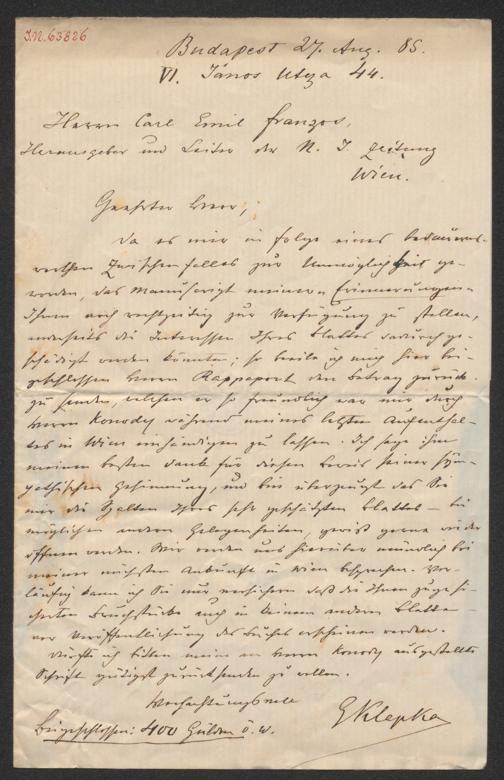 I.N. 63826
Budapest 27. Aug. 85.
VI. János Utcza 44.
Herrn Carl Emil Franzos,
Herausgeber und Leiter der N. I. Zeitung
Wien.
Geehrter Herr,
Da es mir in folge eines bedauerns-
werthen Zwischenfalles zur Unmöglichkeit ge-
worden, das Manuscript meiner „Erinnerungen“
Ihnen noch rechtzeitig zur Verfügung zu stellen,
anderseits die Interessen Ihres Blattes dadurch ge-
schädigt werden könnten; so beeile ich mich hier bei-
geschlossen Herrn Rappaport den Betrag zurück-
zu senden, welchen er so freundlich war mir durch
Herrn Konody während meines letzten Aufenthal-
tes in Wien einhändigen zu lassen. Ich sage ihm
meinen besten Dank für diesen Beweis seiner sym-
pathischen Gesinnung, und bin überzeugt das Sie
mir die Spalten Ihres sehr geschätzten Blattes – bei
möglichen andern Gelegenheiten, gewiss gerne wieder
öffnen werden. Wir werden uns hierüber mündlich bei
meiner nächsten Ankunft in Wien besprechen. Vor-
läufig kann ich Sie nur versichern daß die Ihnen zugesi-
cherten Bruchstücke auch in keinem andern Blatte –
vor Veröffentlichung des Buches erscheinen werden.
Dürfte ich bitten meine an Herrn Konody ausgestellte
Schrift gütigst zurücksenden zu wollen.
Hochachtungsvoll
GKlapka
Beigeschlossen: 400 Gulden ö. W.